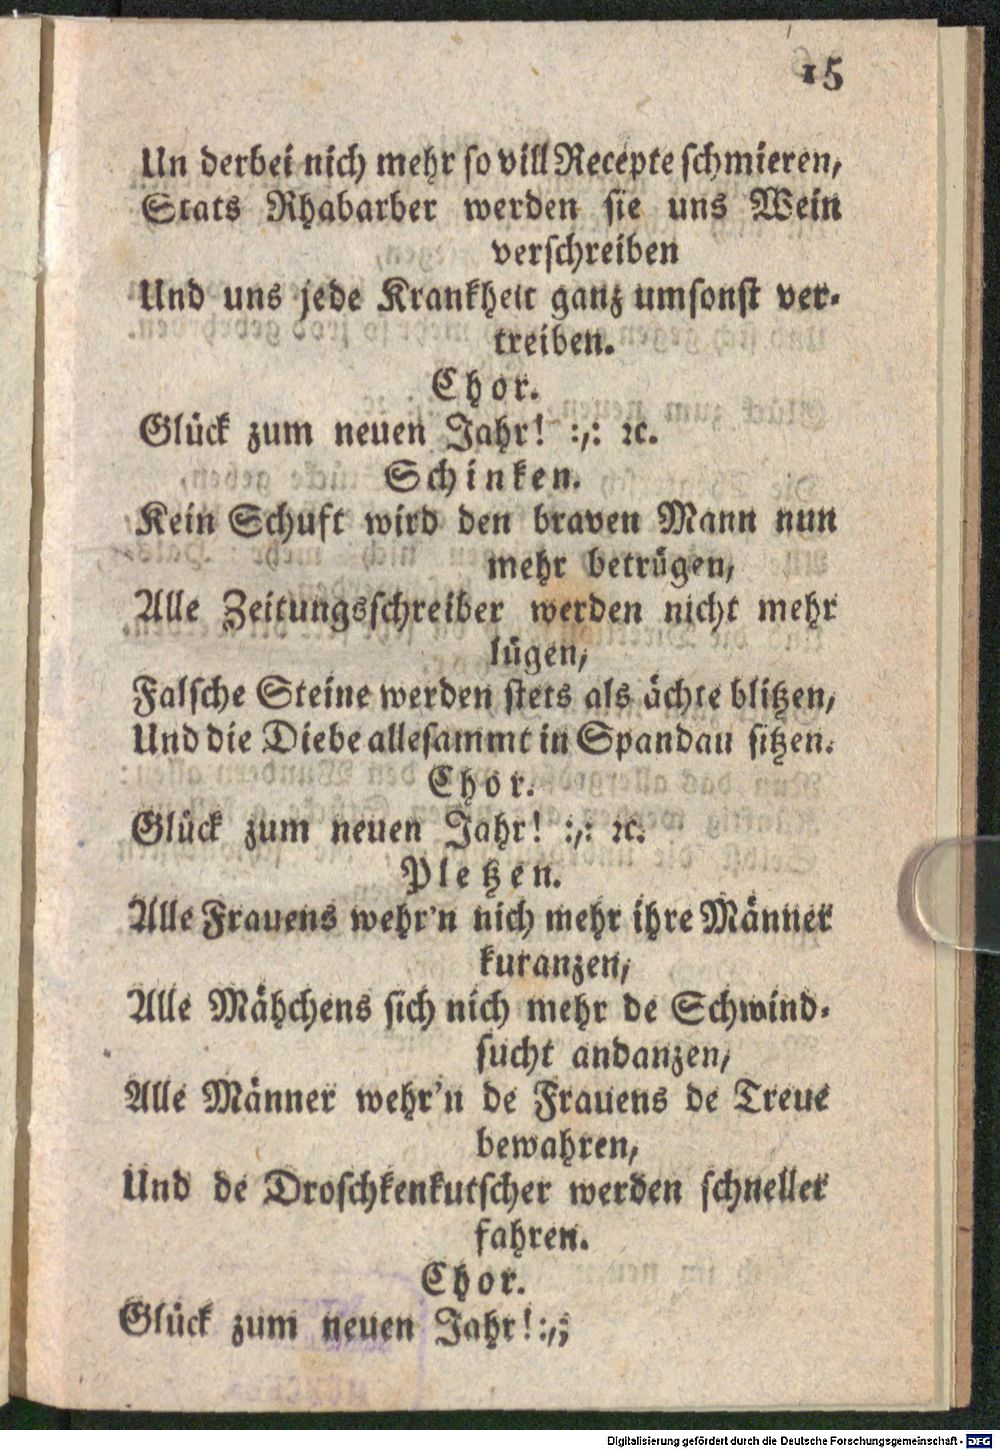 15
Un derbei nich mehr so vill Recepte schmieren,
Stats Rhabarber werden sie uns Wein
verschreiben
Und uns jede Krankheit ganz umsonst ver-
treiben.
Chor.
Glück zum neuen Jahr! :,: ꝛc.
Schinken.
Kein Schuft wird den braven Mann nun
mehr betrügen,
Alle Zeitungsschreiber werden nicht mehr
lügen,
Falsche Steine werden stets als ächte blitzen,
Und die Diebe allesammt in Spandau sitzen.
Chor.
Glück zum neuen Jahr! :,: ꝛc.
Pletzen.
Alle Frauens wehr'n nich mehr ihre Männer
kuranzen,
Alle Mähchens sich nich mehr de Schwind-
sucht andanzen,
Alle Männer wehr'n de Frauens de Treue
bewahren,
Und de Droschkenkutscher werden schneller
fahren.
Chor.
Glück zum neuen Jahr! :,;
Digitalisierung gefördert durch die Deutsche Forschungsgemeinschaft - DFG